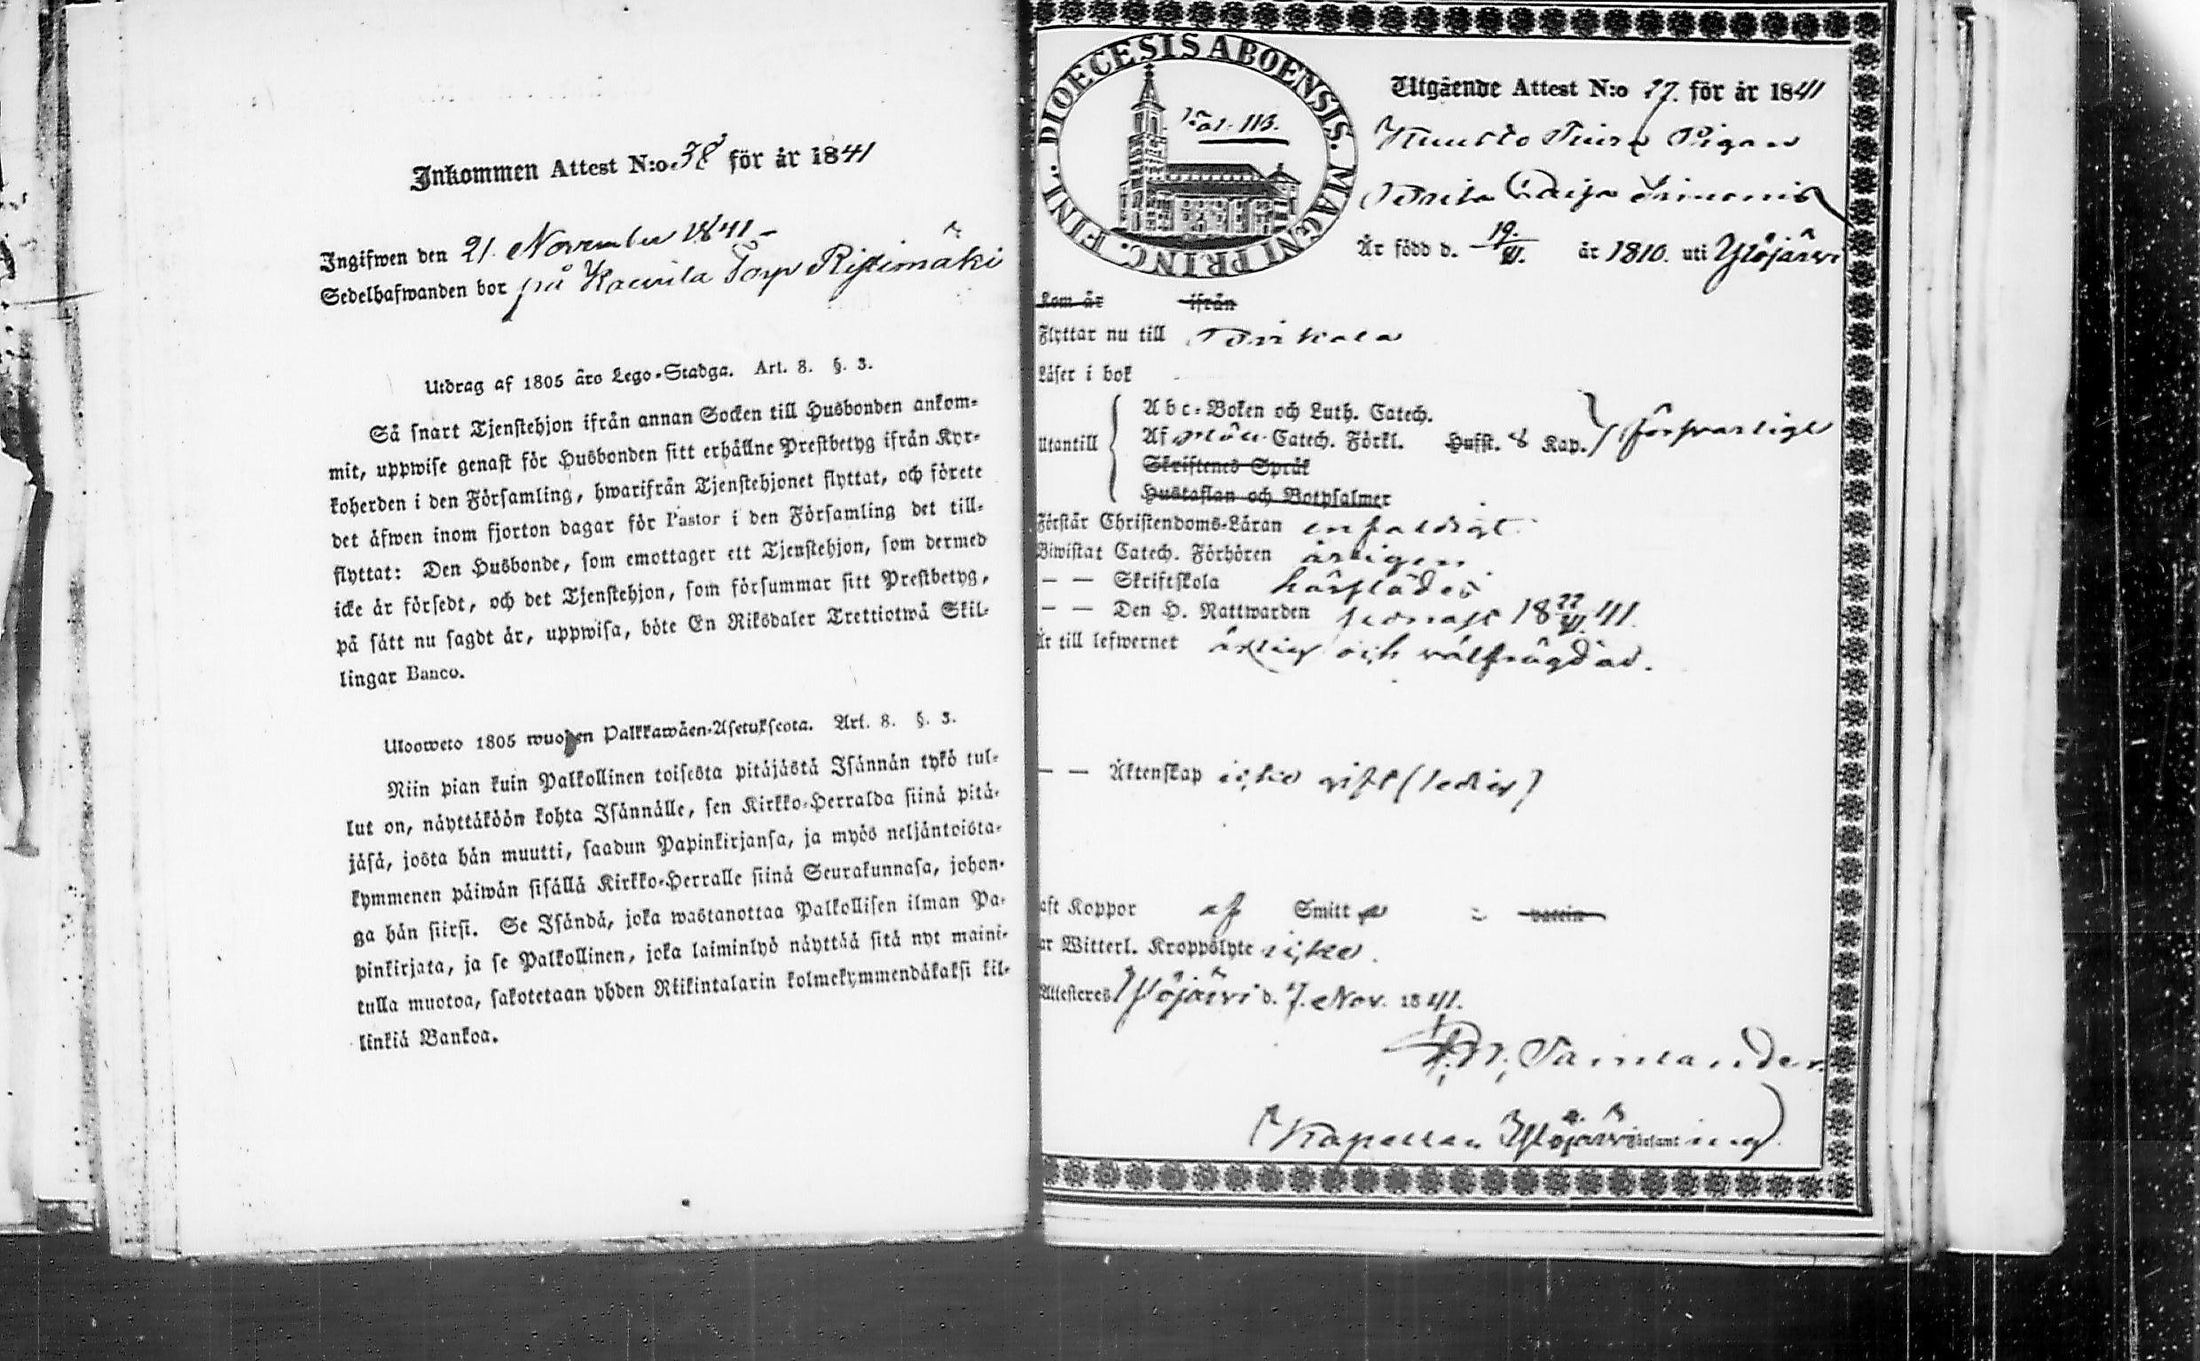 Inkommen Attest N:o 38 för år 1841
Ingifwen den 21. November 1841 -
Sedelhafwanden bor på Torp Ristimäki
Utdrag af 1805 års Lego-Stadga. Art. 8. §. 3.
Så snart Tjenstehjon ifrån annan Socken till Husbonden ankom-
mit, uppwise genast för Husbonden sitt erhållne Prestbetyg ifrån Kyr-
koherden i den Församling, hwarifrån Tjenstehjonet flyttat, och förete
det äfwen inom fjorton dagar för Pastor i den Församling det till-
flyttat: Den Husbonde, som emottager ett Tjenstehjon, som dermed
icke är försedt, och det Tjenstehjon, som försummar sitt Prestbetyg,
på sätt nu sagdt är, uppwisa, böte En Riksdaler Trettiotwå Skil-
lingar Banco.
Ulosweto 1805 wuoden Palkkawäen-Asetuksesta. Art. 8. §. 3.
Niin pian kuin Palkollinen toisesta pitäjästä Isännän tykö tul-
lut on, näyttäköön kohta Isännälle, sen Kirkko-Herralda siinä pitä-
jäsä, josta hän muutti, saadun Papinkirjansa, ja myös neljäntoista-
kymmenen päiwän sisällä Kirkko-Herralle siinä Seurakunnasa, johon-
ga hän siirsi. Se Isändä, joka wastanottaa Palkollisen ilman Pa-
pinkirjata, ja se Palkollinen, joka laiminlyö näyttää sitä nyt maini-
tulla muotoa, sakotetaan yhden Riikintalarin kolmekymmendäkaksi kil-
linkiä Bankoa.
DIOECESIS ABOENSIS. MAGNI PRINC. FINL.
Fol. 113.
Utgående Attest N:o 27. för år 1841
Pigan
Brita Caisa Simonis
År född d. 19/VI. år 1810. uti Ylöjärvi
Kom år ifrån
Flyttar nu till Birkala
Läser i bok
Utantill
Abc-Boken och Luth. Catech.
Af Catech. Förkl. Hufst. 8 Kap. försvarligt
Skriftenes Språk
Hustaflan och Botpsalmer
Förstår Christendoms-Läran enfaldigt.
Biwistat Catech. Förhören årligen
— — Skriftskola härstädes
— — Den H. Nattwarden senast 18 22/VI. 41.
Är till lefwernet ärlig och välfrägdad.
— — Äktenskap icke gift (ledig)
aft Koppor af Smitta = vaccin
ar Witterl. Kroppslyte icke.
Attesteres Ylöjärvi d. 7. Nov. 1841.
Kapellan Ylöjärvi Församling